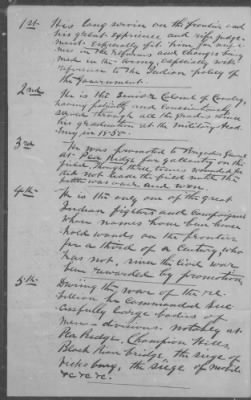 1st His long service on the frontier and
his great experience and wise judge-
ment especially fit him for any
in the reforms and changes
made in the Army, especially with
reference to the Indian policy of
the Government.
2nd He is the Senior Colonel of Cavalry,
having faithfully and
served through all the grades since
his graduation at the Military Acad-
emy, in 1850.
3rd He was promoted to Brigadier General
at Pea Ridge for gallantry on the
field. Though three times wounded he
did not leave the field until the
battle was over and won.
4th He is the only one of the great
Indian fighters and Campaigners
whose names have been house-
hold words on the frontier
for a third of a Century, who
has not, since the Civil war
been rewarded by promotion.
5th During the war of the re-
bellion he commanded suc-
cessfully large bodies of
men - divisions. notably at
Pea Ridge, Champion Hills,
Black River bridge, the siege of
Vicksburg, the siege of Mobile
&c &c &c.